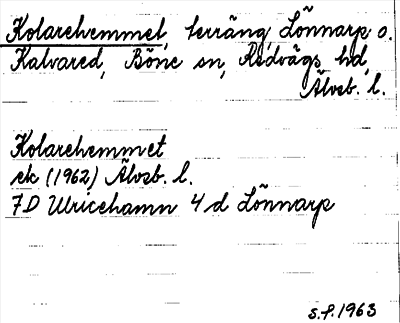 Kolarehemmet, terräng, Lönnarp o.
Kalvared, Böne sn, Redvägs hd,
Älvsb. l.
Kolarehemmet
ek (1962) Älvsb. l.
7D Ulricehamn 4 d Lönnarp
S.F. 1963